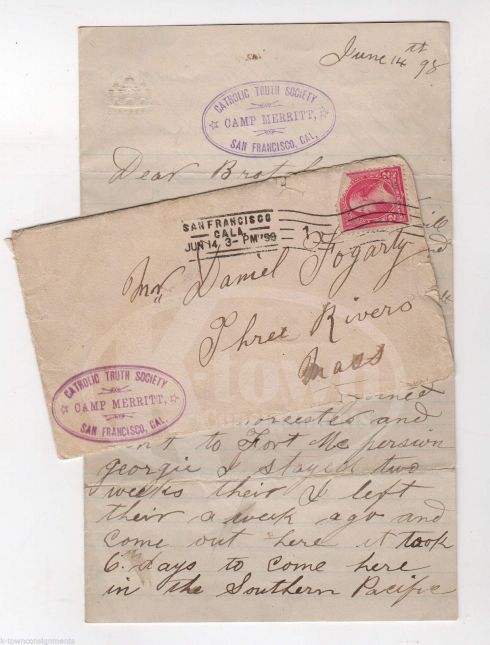 June 14th 98
CATHOLIC TRUTH SOCIETY
CAMP MERRITT,
SAN FRANCISCO, CAL.
Dear Brot
SAN FRANCISCO
CALA.
JUN 14 3-PM '98
1
Mr. Daniel Fogarty
Three Rivers
Mass
CATHOLIC TRUTH SOCIETY
CAMP MERRITT,
SAN FRANCISCO, CAL.
joined
orcester and
nt to Fort Mc persion
georgie I stayed two
weeks their I left
their a week ago and
come out here it took
6 days to come here
in the Southern Pacific
k-town
k-townconsignments